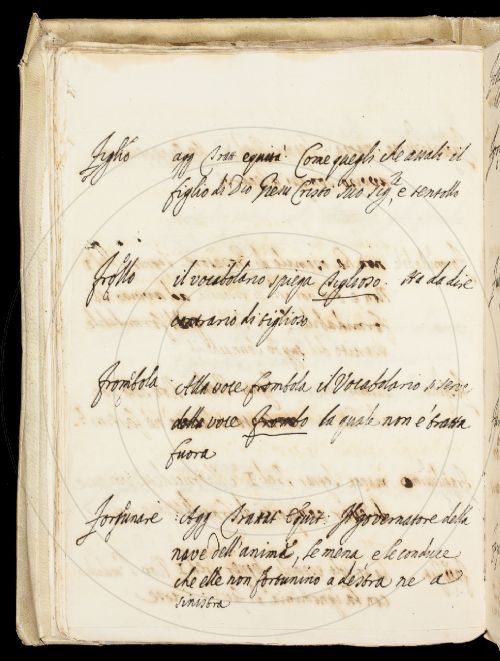 figlio agg Tratt equità. Come quegli che assalì il
figlio di Dio Giesu Cristo suo Sigre, e tentollo
frollo il vocabolario spiega tiglioso. sta da dire
contrario di tiglioso
frombola Alla voce frombola il Vocabolario si serve
della voce frombo la quale non è tratta
fuora
fortunare Agg Trattt Equit: Il governatore della
nave dell'anima, le mena e le conduce
che elle non fortunino a destra ne a
sinistra